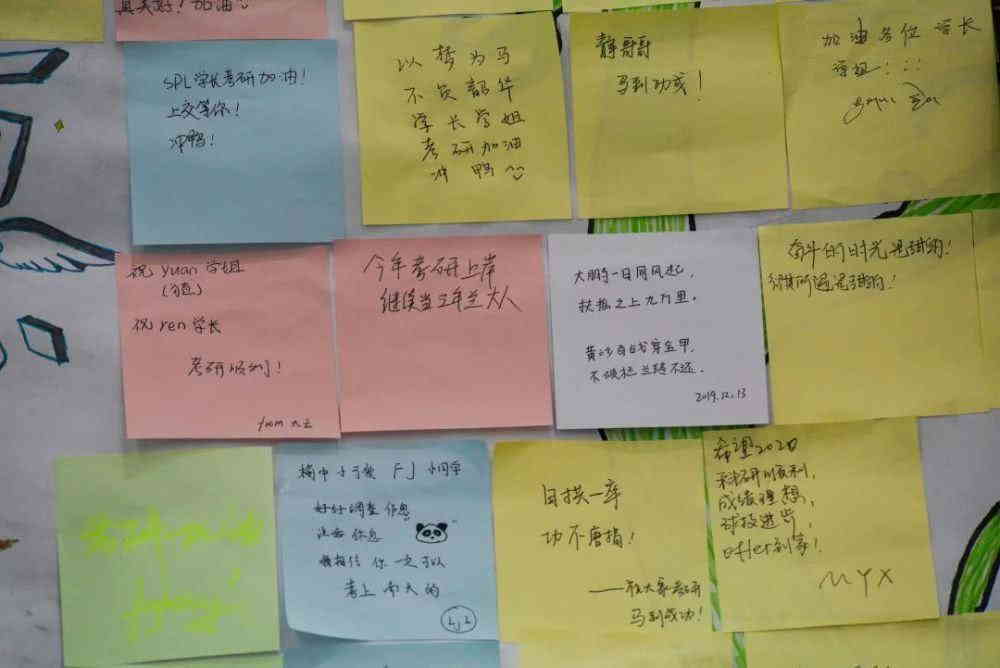 真美好!加油
SPL学长考研加油!
上交等你!
冲鸭!
以梦为马
不负韶华
学长学姐
考研加油
冲鸭
静哥哥
马到功成!
加油各位学长
学姐!!!
祝 yuan 学姐
祝 ren 学长
考研顺利!
from 大云
今年考研上岸
继续当三年兰大人
大鹏一日同风起,
扶摇之上九万里。
黄沙百战穿金甲,
不破楼兰终不还.
2019.12.13
奋斗的时光是甜的!
所遇是甜的!
FJ 小同学
好好调整作息
注意休息
我相信你一定可以
考上南大的
LJL
日拱一卒
功不唐捐!
——祝大家考研
马到成功!
希望2020
科研顺利,
成绩理想,
球技进步,
offer到家!
MYX